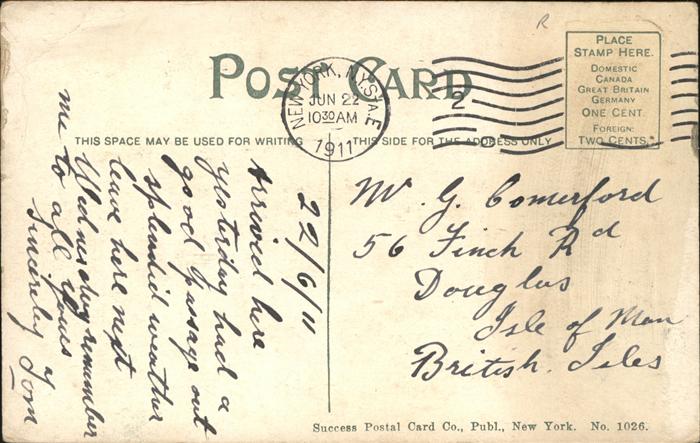 POST CARD
NEW YORK, N.Y. STA. E
JUN 22
10 30 AM
1911
2
PLACE
STAMP HERE.
DOMESTIC
CANADA
GREAT BRITAIN
GERMANY
ONE CENT.
FOREIGN:
TWO CENTS.
THIS SPACE MAY BE USED FOR WRITING
THIS SIDE FOR THE ADDRESS ONLY
22/6/11
Arrived here
yesterday had a
good passage out
splendid weather
leave here next
Wednesday remember
me to all yours
Sincerely Tom
Mr. G. Comerford
56 Finch Rd
Douglas
Isle of Man
British. Isles
Success Postal Card Co., Publ., New York. No. 1026.
R